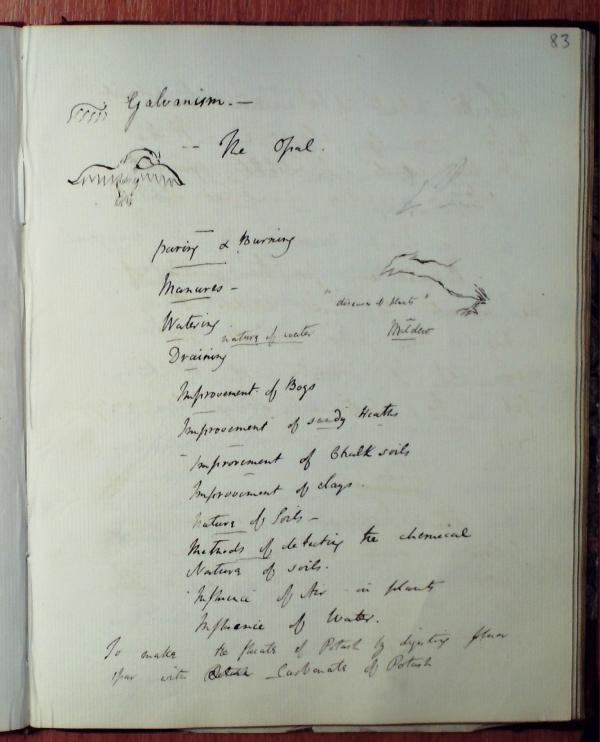 83
Galvanism. —
-- The Opal.
paring & Burning
Manures -
"diseases of plants"
Watering
nature of water
Mildew
Draining
Improvement of Bogs
Improvement of sandy Heaths
Improvement of Chalk soils
Improvement of clays.
Nature of Soils -
Methods of detecting the chemical
Nature of soils.
Influence of Air in plants
Influence of Water.
To make the fluate of Potash by digesting fluor
spar with Carbonate of Potash